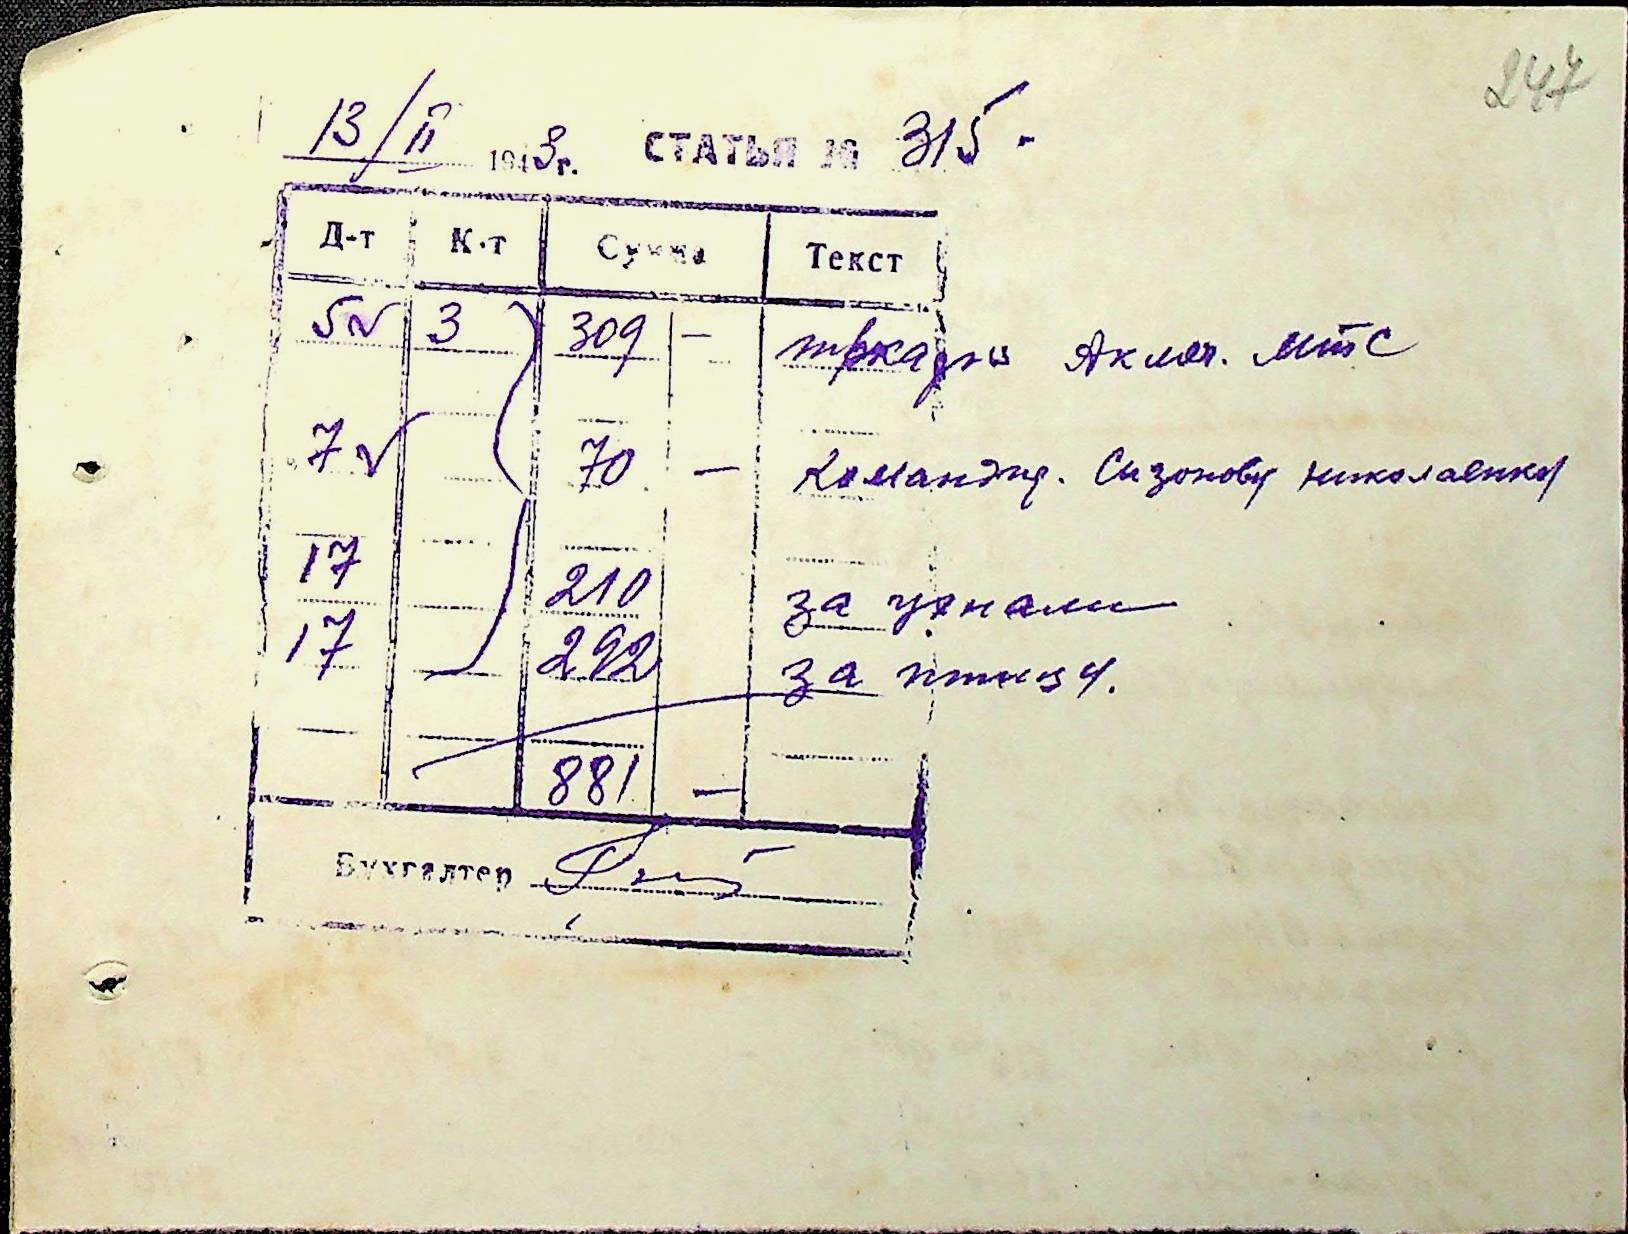 247
13/II 1943 г. СТАТЬЯ № 315
Д-т К-т Сумма Текст
5 3 309 — Аключ. МТС
7 70 — Командир. Сизонову Николаенко
17 210 за
17 292 за птицу.
881 —
Бухгалтер